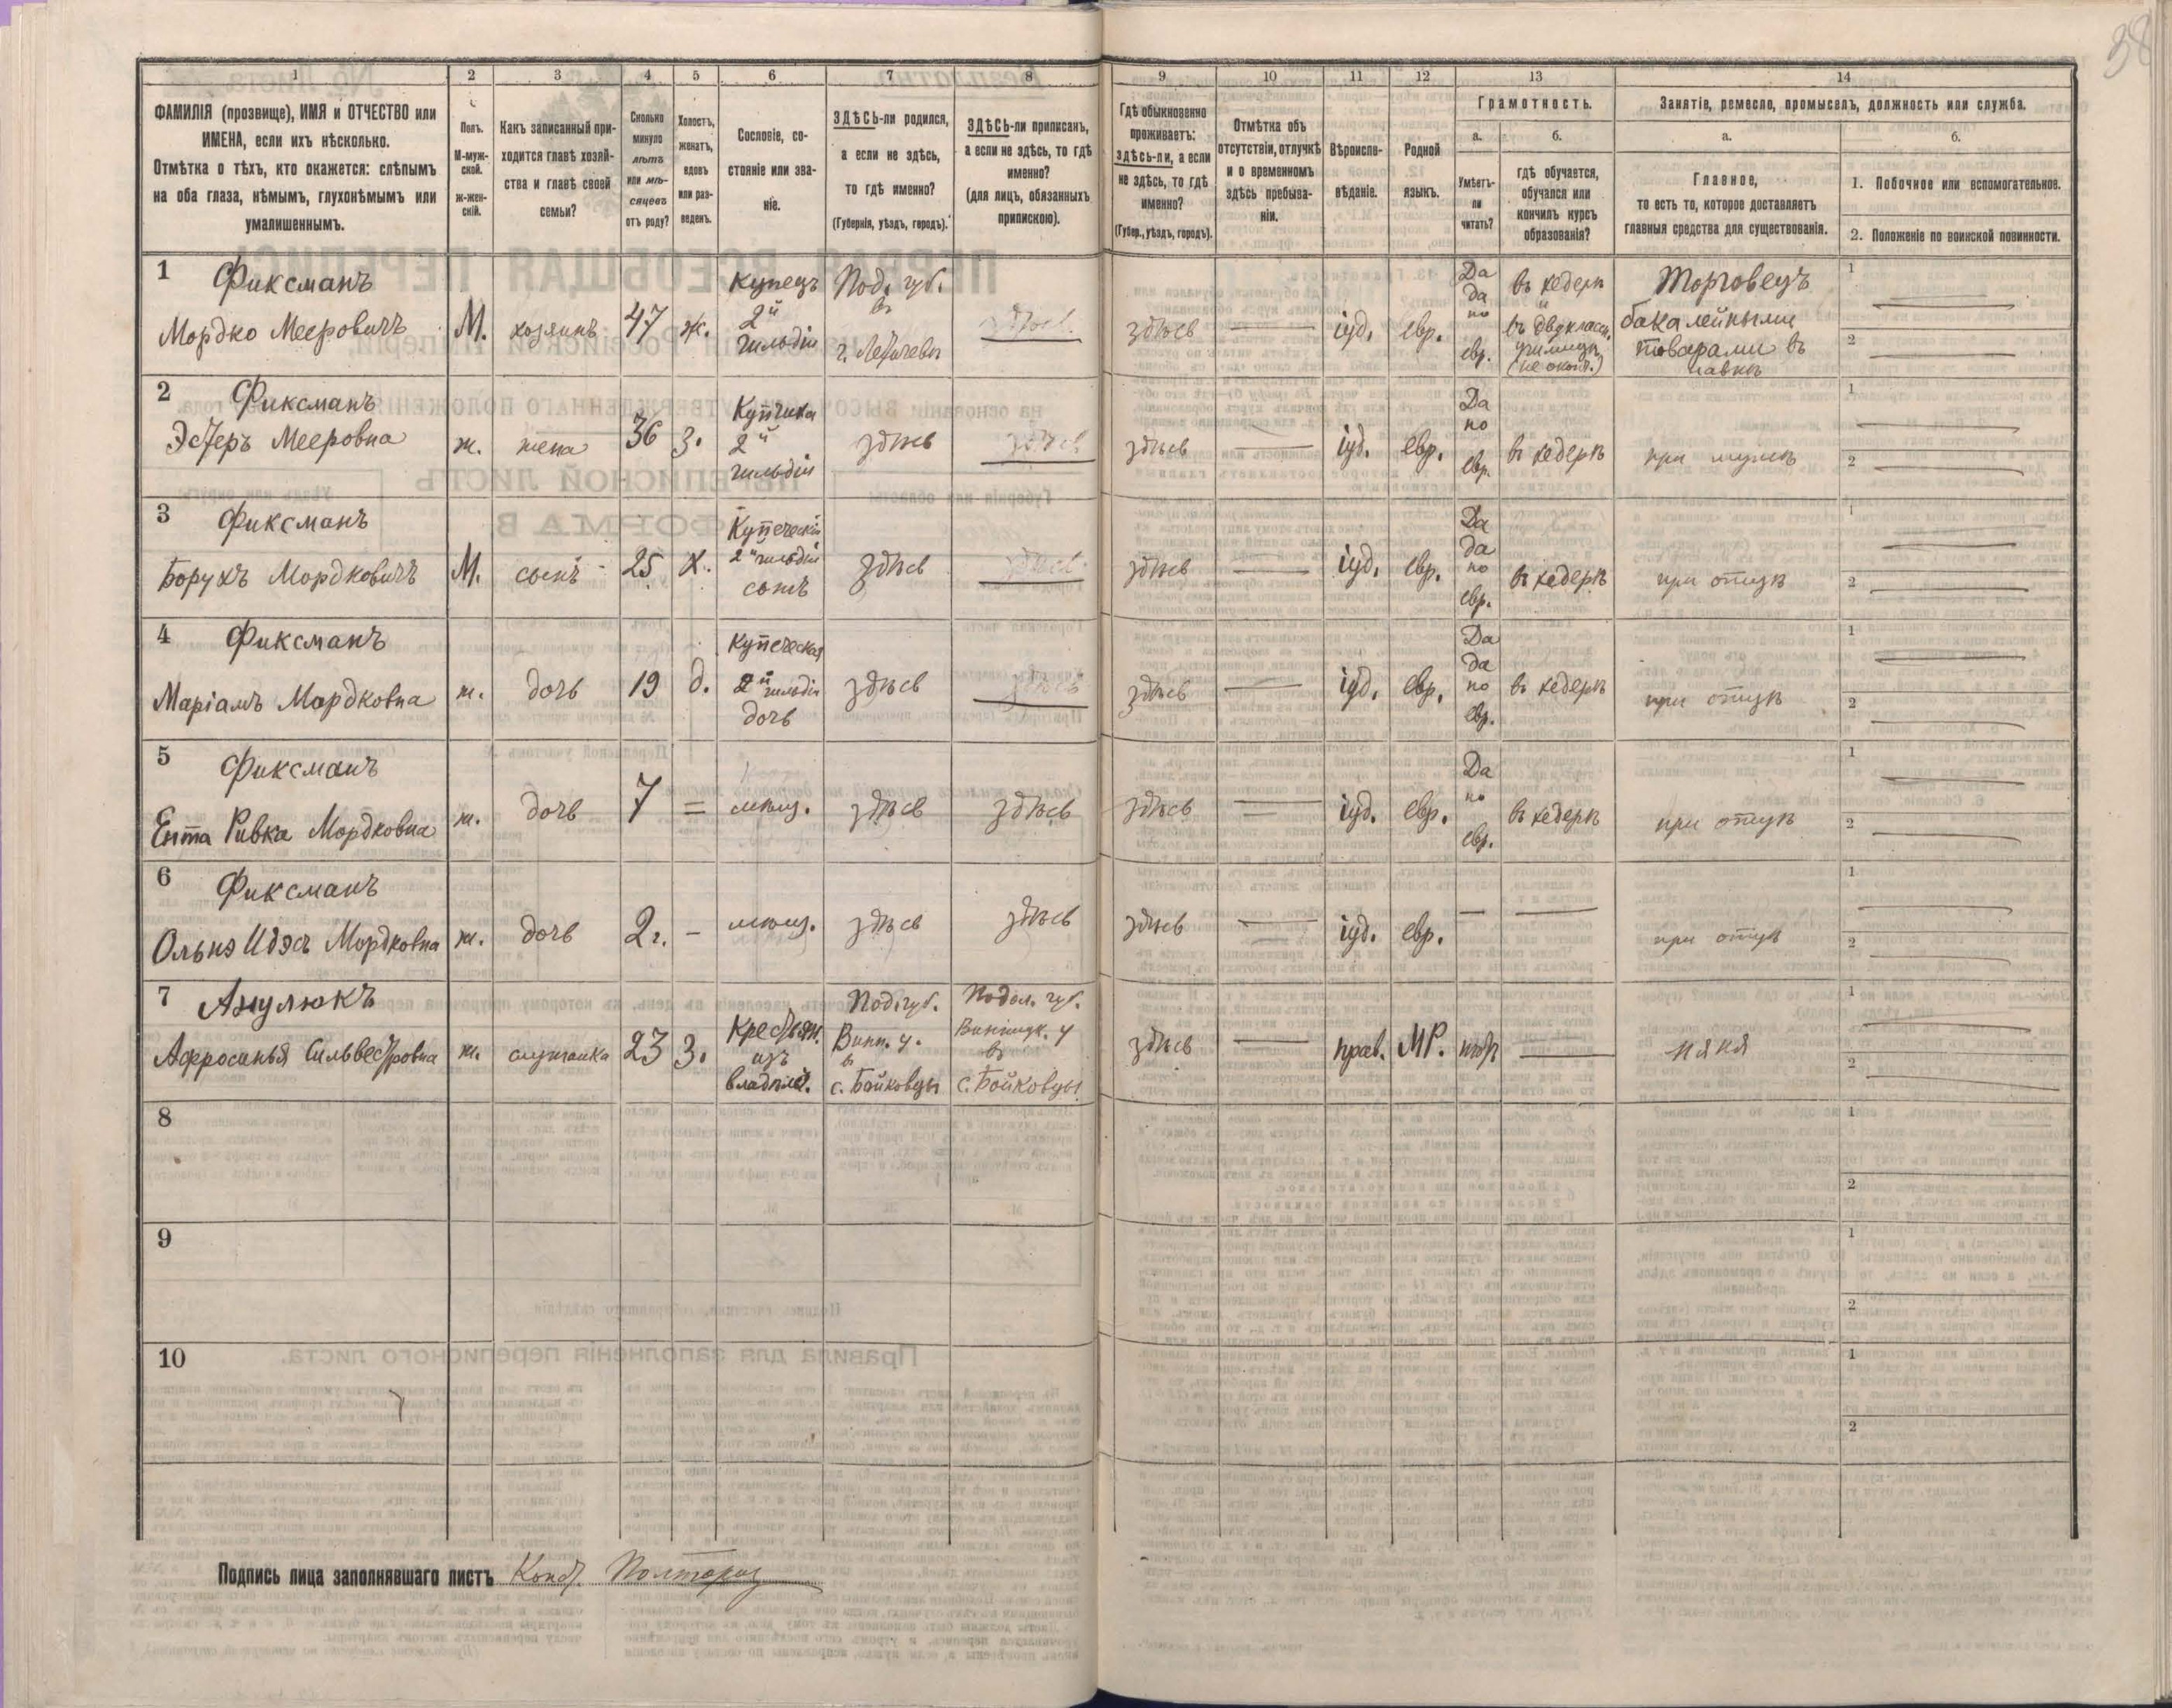 38
1 2 3 4 5 6 7 8 9 10 11 12 13 14
ФАМИЛІЯ (прозвище), ИМЯ и ОТЧЕСТВО или
ИМЕНА, если ихъ нѣсколько.
Отмѣтка о тѣхъ, кто окажется: слѣпымъ
на оба глаза, нѣмымъ, глухонѣмымъ или
умалишеннымъ.
Полъ.
М-муж-
ской.
ж-жен-
скій.
Какъ записанный при-
ходится главѣ хозяй-
ства и главѣ своей
семьи?
Сколько
минуло
лѣтъ
или мѣ-
сяцевъ
отъ роду?
Холостъ,
женатъ,
вдовъ
или раз-
веденъ.
Сословіе, со-
стояніе или зва-
ніе.
ЗДѢСЬ-ли родился,
а если не здѣсь,
то гдѣ именно?
(Губернія, уѣздъ, городъ).
ЗДѢСЬ-ли приписанъ,
а если не здѣсь, то гдѣ
именно?
(для лицъ, обязанныхъ
припискою).
Гдѣ обыкновенно
проживаетъ:
здѣсь-ли, а если
не здѣсь, то гдѣ
именно?
(Губер., уѣздъ, городъ).
Отмѣтка объ
отсутствіи, отлучкѣ
и о временномъ
здѣсь пребыва-
ніи.
Вѣроиспо-
вѣданіе.
Родной
языкъ.
Грамотность.
а.
Умѣетъ-
ли
читать?
б.
гдѣ обучается,
обучался или
кончилъ курсъ
образованія?
Занятіе, ремесло, промыселъ, должность или служба.
а.
Главное,
то есть то, которое доставляетъ
главныя средства для существованія.
б.
1. Побочное или вспомогательное.
2. Положеніе по воинской повинности.
1 Фиксманъ
Мордко Мееровичъ
М.
хозяинъ
47
ж.
Купецъ
2й
гильдіи
Под. губ.
въ
г. Летичевъ
здѣсь
здѣсь
—
іуд.
евр.
Да
да
по
евр.
въ хедерѣ
и
въ двуклассн.
училищѣ
(не оконч.)
Торговецъ
бакалейными
товарами въ
лавкѣ
1 —
2 —
2 Фиксманъ
Эстеръ Мееровна
ж.
жена
36
З.
Купчиха
2й
гильдіи
здѣсь
здѣсь
здѣсь
—
іуд.
евр.
Да
по
евр.
въ хедерѣ
при мужѣ
1 —
2 —
3 Фиксманъ
Борухъ Мордковичъ
М.
сынъ
25
Х.
Купеческій
2й гильдіи
сынъ
здѣсь
здѣсь
здѣсь
—
іуд.
евр.
Да
да
по
евр.
въ хедерѣ
при отцѣ
1 —
2 —
4 Фиксманъ
Маріамъ Мордковна
ж.
дочь
19
д.
Купеческая
2й гильдіи
дочь
здѣсь
здѣсь
здѣсь
—
іуд.
евр.
Да
да
по
евр.
въ хедерѣ
при отцѣ
1 —
2 —
5 Фиксманъ
Ента Ривка Мордковна
ж.
дочь
7
=
мѣщ.
здѣсь
здѣсь
здѣсь
=
іуд.
евр.
Да
по
евр.
въ хедерѣ
при отцѣ
1 —
2 —
6 Фиксманъ
Ольнэ Идэсъ Мордковна
ж.
дочь
2 г.
-
мѣщ.
здѣсь
здѣсь
здѣсь
—
іуд.
евр.
—
—
при отцѣ
1 —
2 —
7
Афросинья Сильвестровна
ж.
служанка
23
З.
Крестьян.
изъ
владѣл.
Под. губ.
Винн. у.
в
с. Бойковцы
Подол. губ.
Винницк. у
в
с. Бойковцы
здѣсь
—
прав.
МР.
нѣтъ
—
няня
1 —
2 —
8
1
2
9
1
2
10
1
2
Подпись лица заполнявшаго листъ Конд.